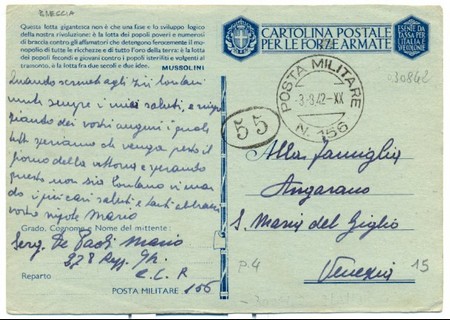 BRECCIA
Questa lotta gigantesca non è che una fase e lo sviluppo logico
della nostra rivoluzione: è la lotta dei popoli poveri e numerosi
di braccia contro gli affamatori che detengono ferocemente il mo-
nopolio di tutte le ricchezze e di tutto l'oro della terra: è la lotta
dei popoli fecondi e giovani contro i popoli isteriliti e volgenti al
tramonto, è la lotta fra due secoli e due idee.
MUSSOLINI
CARTOLINA POSTALE
PER LE FORZE ARMATE
ESENTE DA
TASSA PER
L'ITALIA
POSTA MILITARE
-3-9-42-XX
N. 156
55
030842
Quando scrivete agli zii lontani
sempre i miei saluti, e
dei vostri auguri i quali
tutti speriamo che venga presto il
giorno della vittoria e sperando
questo non sia lontano vi man-
do i più cari saluti e tanti abbracci
vostro nipote Mario
Grado, Cognome e Nome del mittente:
Serg. De Paoli Mario
Reparto
POSTA MILITARE 156
Alla Famiglia
Angarano
S. Maria del Giglio
P.4
Venezia
15